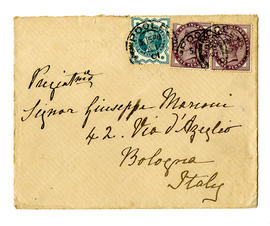 Pregiatmo
Signor Giuseppe Marconi
42. Via d'Azeglio
Bologna
Italy